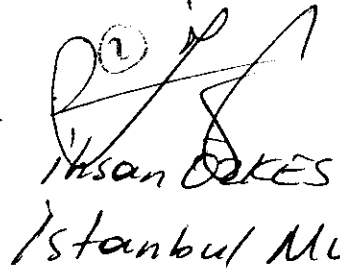 2
İhsan ÖZKES
İstanbul Mi